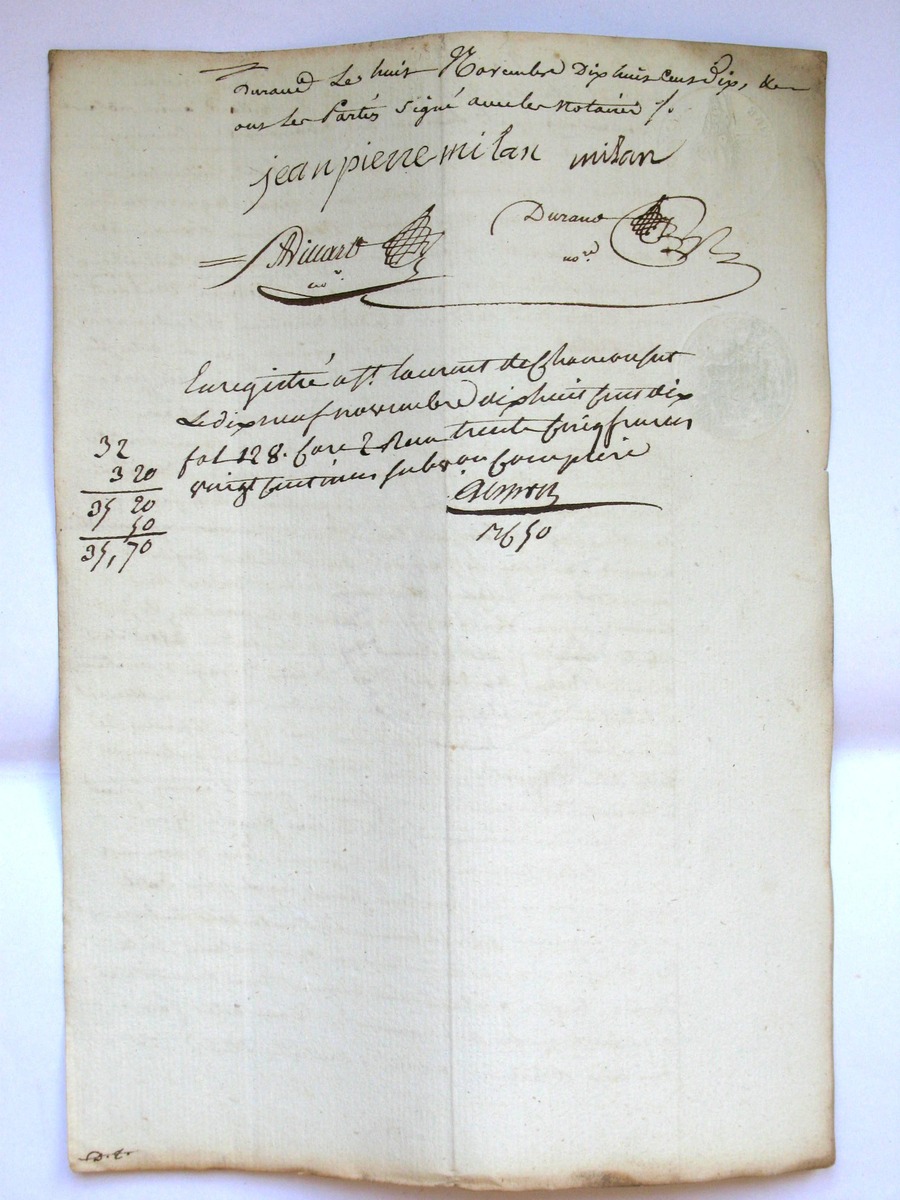 Durand Le huit Novembre Dix huit Cent Dix, &
ont Les Parties Signé avec les Notaires /.
jean pierre milan milan
Durand
nore
nore
Enregistré a st. laurent de Chamousset
Le dix neuf novembre dix huit cent dix
fol 128. Care 2 Recu trente cinq francs
vingt centimes subvon comprise
32
3 20
35 20
50
35,70
7650
D.t.